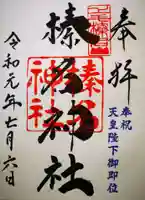 奉拝
奉祝
天皇陛下御即位
榛名神社
榛名
神社
令和元年七月六日